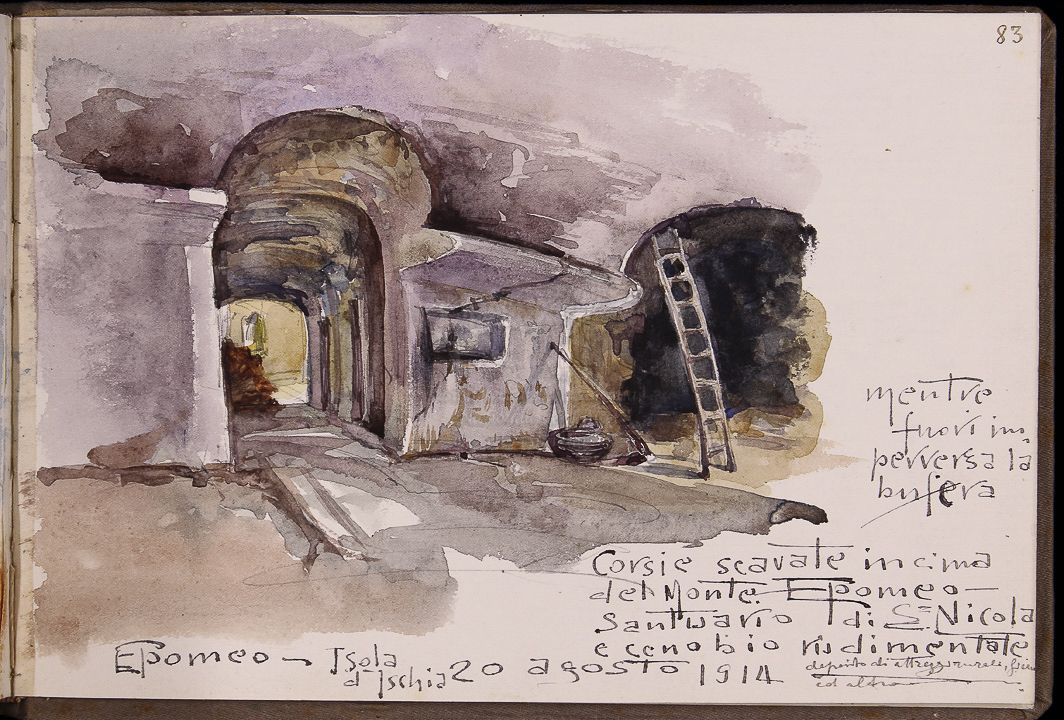 83
mentre
fuori im
perversa la
bufera
Corsie scavate in cima
del Monte Epomeo —
Santuario di S. Nicola
e cenobio rudimentale
deposito di attrezzi rurali,
ed altro
Epomeo — Isola
d'Ischia 20 agosto 1914